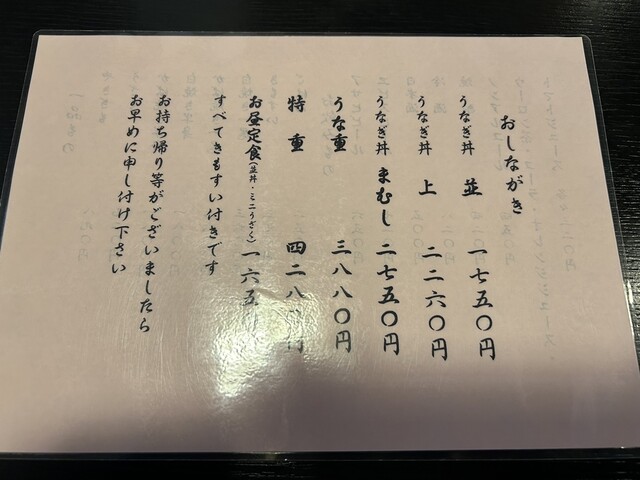 おしながき
うなぎ丼 並 一七五〇円
うなぎ丼 上 二二六〇円
うなぎ丼 まむし 二七五〇円
うな重 三八八〇円
特重 四二八 円
お昼定食(並丼・ミニうざく) 一六五
すべてきもすい付きです
お持ち帰り等がございましたら
お早めに申し付け下さい